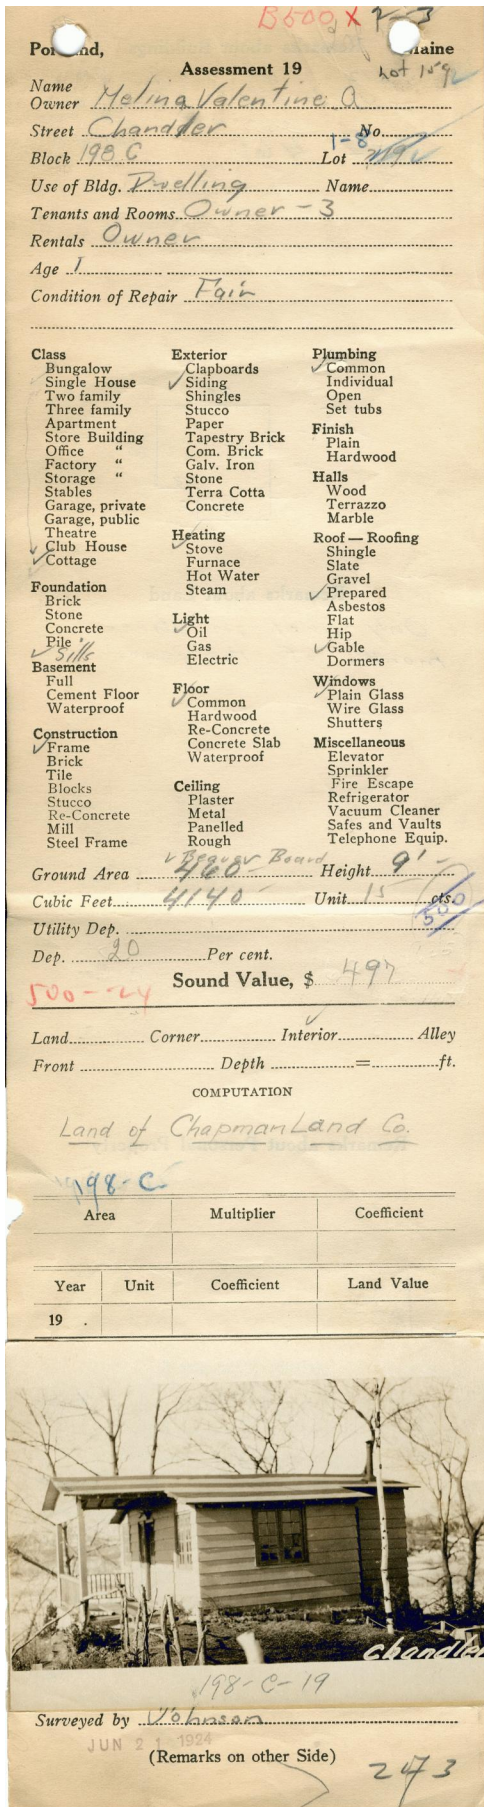 B500 x 2-3
Portland, Maine
Assessment 19
Lot 1592
Name
Owner Melina Valentine A
Street Chandler No.
1-8
Block 198 C Lot
Use of Bldg. Dwelling Name
Tenants and Rooms Owner - 3
Rentals Owner
Age 1
Condition of Repair Fair
Class
Bungalow
Single House
Two family
Three family
Apartment
Store Building
Office "
Factory "
Storage "
Stables
Garage, private
Garage, public
Theatre
Club House
✓ Cottage
Foundation
Brick
Stone
Concrete
Pile
✓ Sills
Basement
Full
Cement Floor
Waterproof
Construction
✓ Frame
Brick
Tile
Blocks
Stucco
Re-Concrete
Mill
Steel Frame
Exterior
Clapboards
✓ Siding
Shingles
Stucco
Paper
Tapestry Brick
Com. Brick
Galv. Iron
Stone
Terra Cotta
Concrete
Heating
✓ Stove
Furnace
Hot Water
Steam
Light
✓ Oil
Gas
Electric
Floor
✓ Common
Hardwood
Re-Concrete
Concrete Slab
Waterproof
Ceiling
Plaster
Metal
Panelled
Rough
✓ Beaver Board
Plumbing
✓ Common
Individual
Open
Set tubs
Finish
Plain
Hardwood
Halls
Wood
Terrazzo
Marble
Roof — Roofing
Shingle
Slate
Gravel
✓ Prepared
Asbestos
Flat
Hip
✓ Gable
Dormers
Windows
✓ Plain Glass
Wire Glass
Shutters
Miscellaneous
Elevator
Sprinkler
Fire Escape
Refrigerator
Vacuum Cleaner
Safes and Vaults
Telephone Equip.
Ground Area 460 Height 9'-
Cubic Feet 4140 Unit 15 cts.
500
Utility Dep.
Dep. 20 Per cent.
Sound Value, $ 497
500-24
Land Corner Interior ✓ Alley
Front Depth = ft.
COMPUTATION
Land of Chapman Land Co.
198-C
Area Multiplier Coefficient
Year Unit Coefficient Land Value
19 .
Chandler
198-C-19
Surveyed by Johnson
JUN 21 1924
(Remarks on other Side)
2473